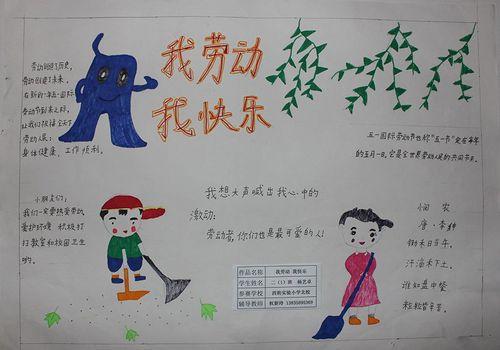 我劳动
我快乐
劳动创造了历史,
劳动创造了未来,
在新的一年五一国际
劳动节到来之际,
让我们祝福全天下
劳动人民:
身体健康、工作顺利。
五一国际劳动节也称"五一节"定在每年
的五月一日。它是全世界劳动人民的共同节日。
小朋友们:
我们一定要热爱劳动
爱护环境 积极打
扫教室和校园卫生
哟。
我想大声喊出我心中的
激动:
劳动者,你们也是最可爱的人!
悯 农
唐·李绅
锄禾日当午。
汗滴禾下土。
谁知盘中餐
粒粒皆辛苦。
作品名称 我劳动 我快乐
学生姓名 二(1)班 杨艺卓
参赛学校 西街实验小学北校
辅导教师